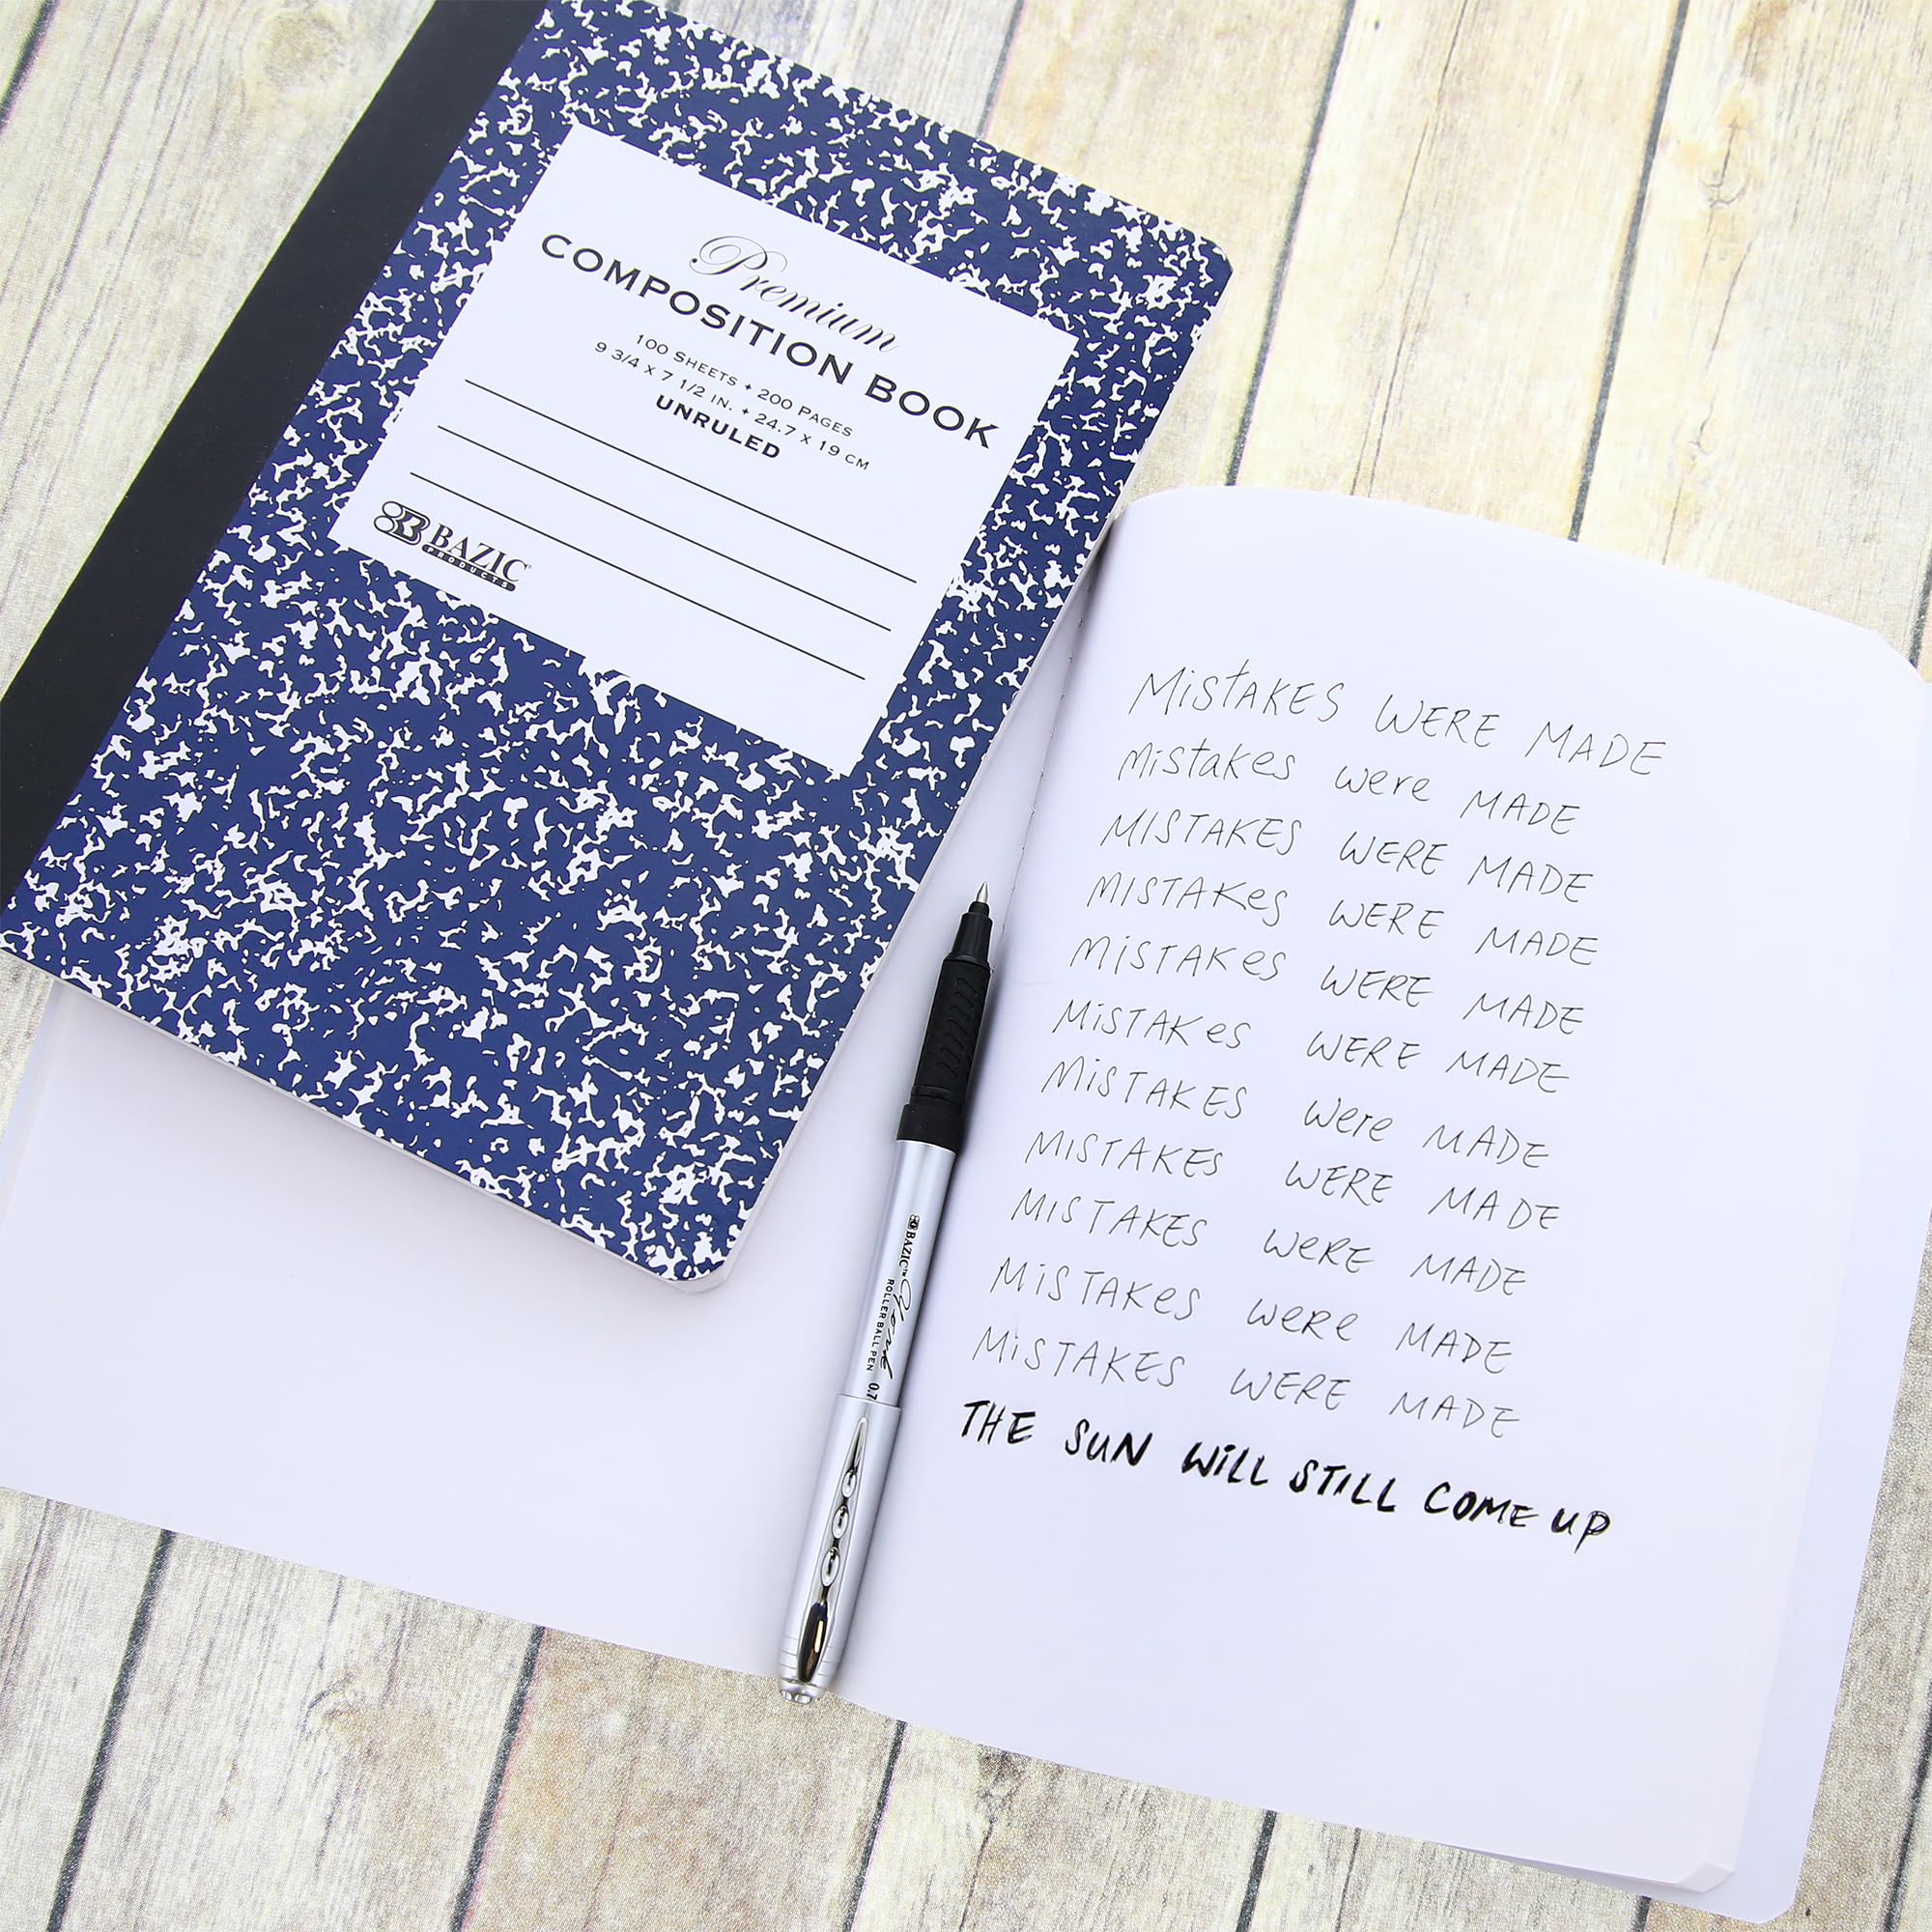 Premium
COMPOSITION BOOK
100 SHEETS • 200 PAGES
9 3/4 X 7 1/2 IN. • 24.7 X 19 CM
UNRULED
BAZIC
PRODUCTS
MiSTAKES WERE MADE
Mistakes were MADE
MISTAKES WERE MADE
MISTAKes WERE MADE
MiSTAKes WERE MADE
MiSTAKes WERE MADE
MiSTAKES Were MADE
MISTAKES WERE MADE
MISTAKES WeRE MADE
MiSTAKes WeRe MADE
MiSTAKES WERE MADE
THE SUN WiLL STILL COME UP
BAZIC™
ROLLER BALL PEN 0.7